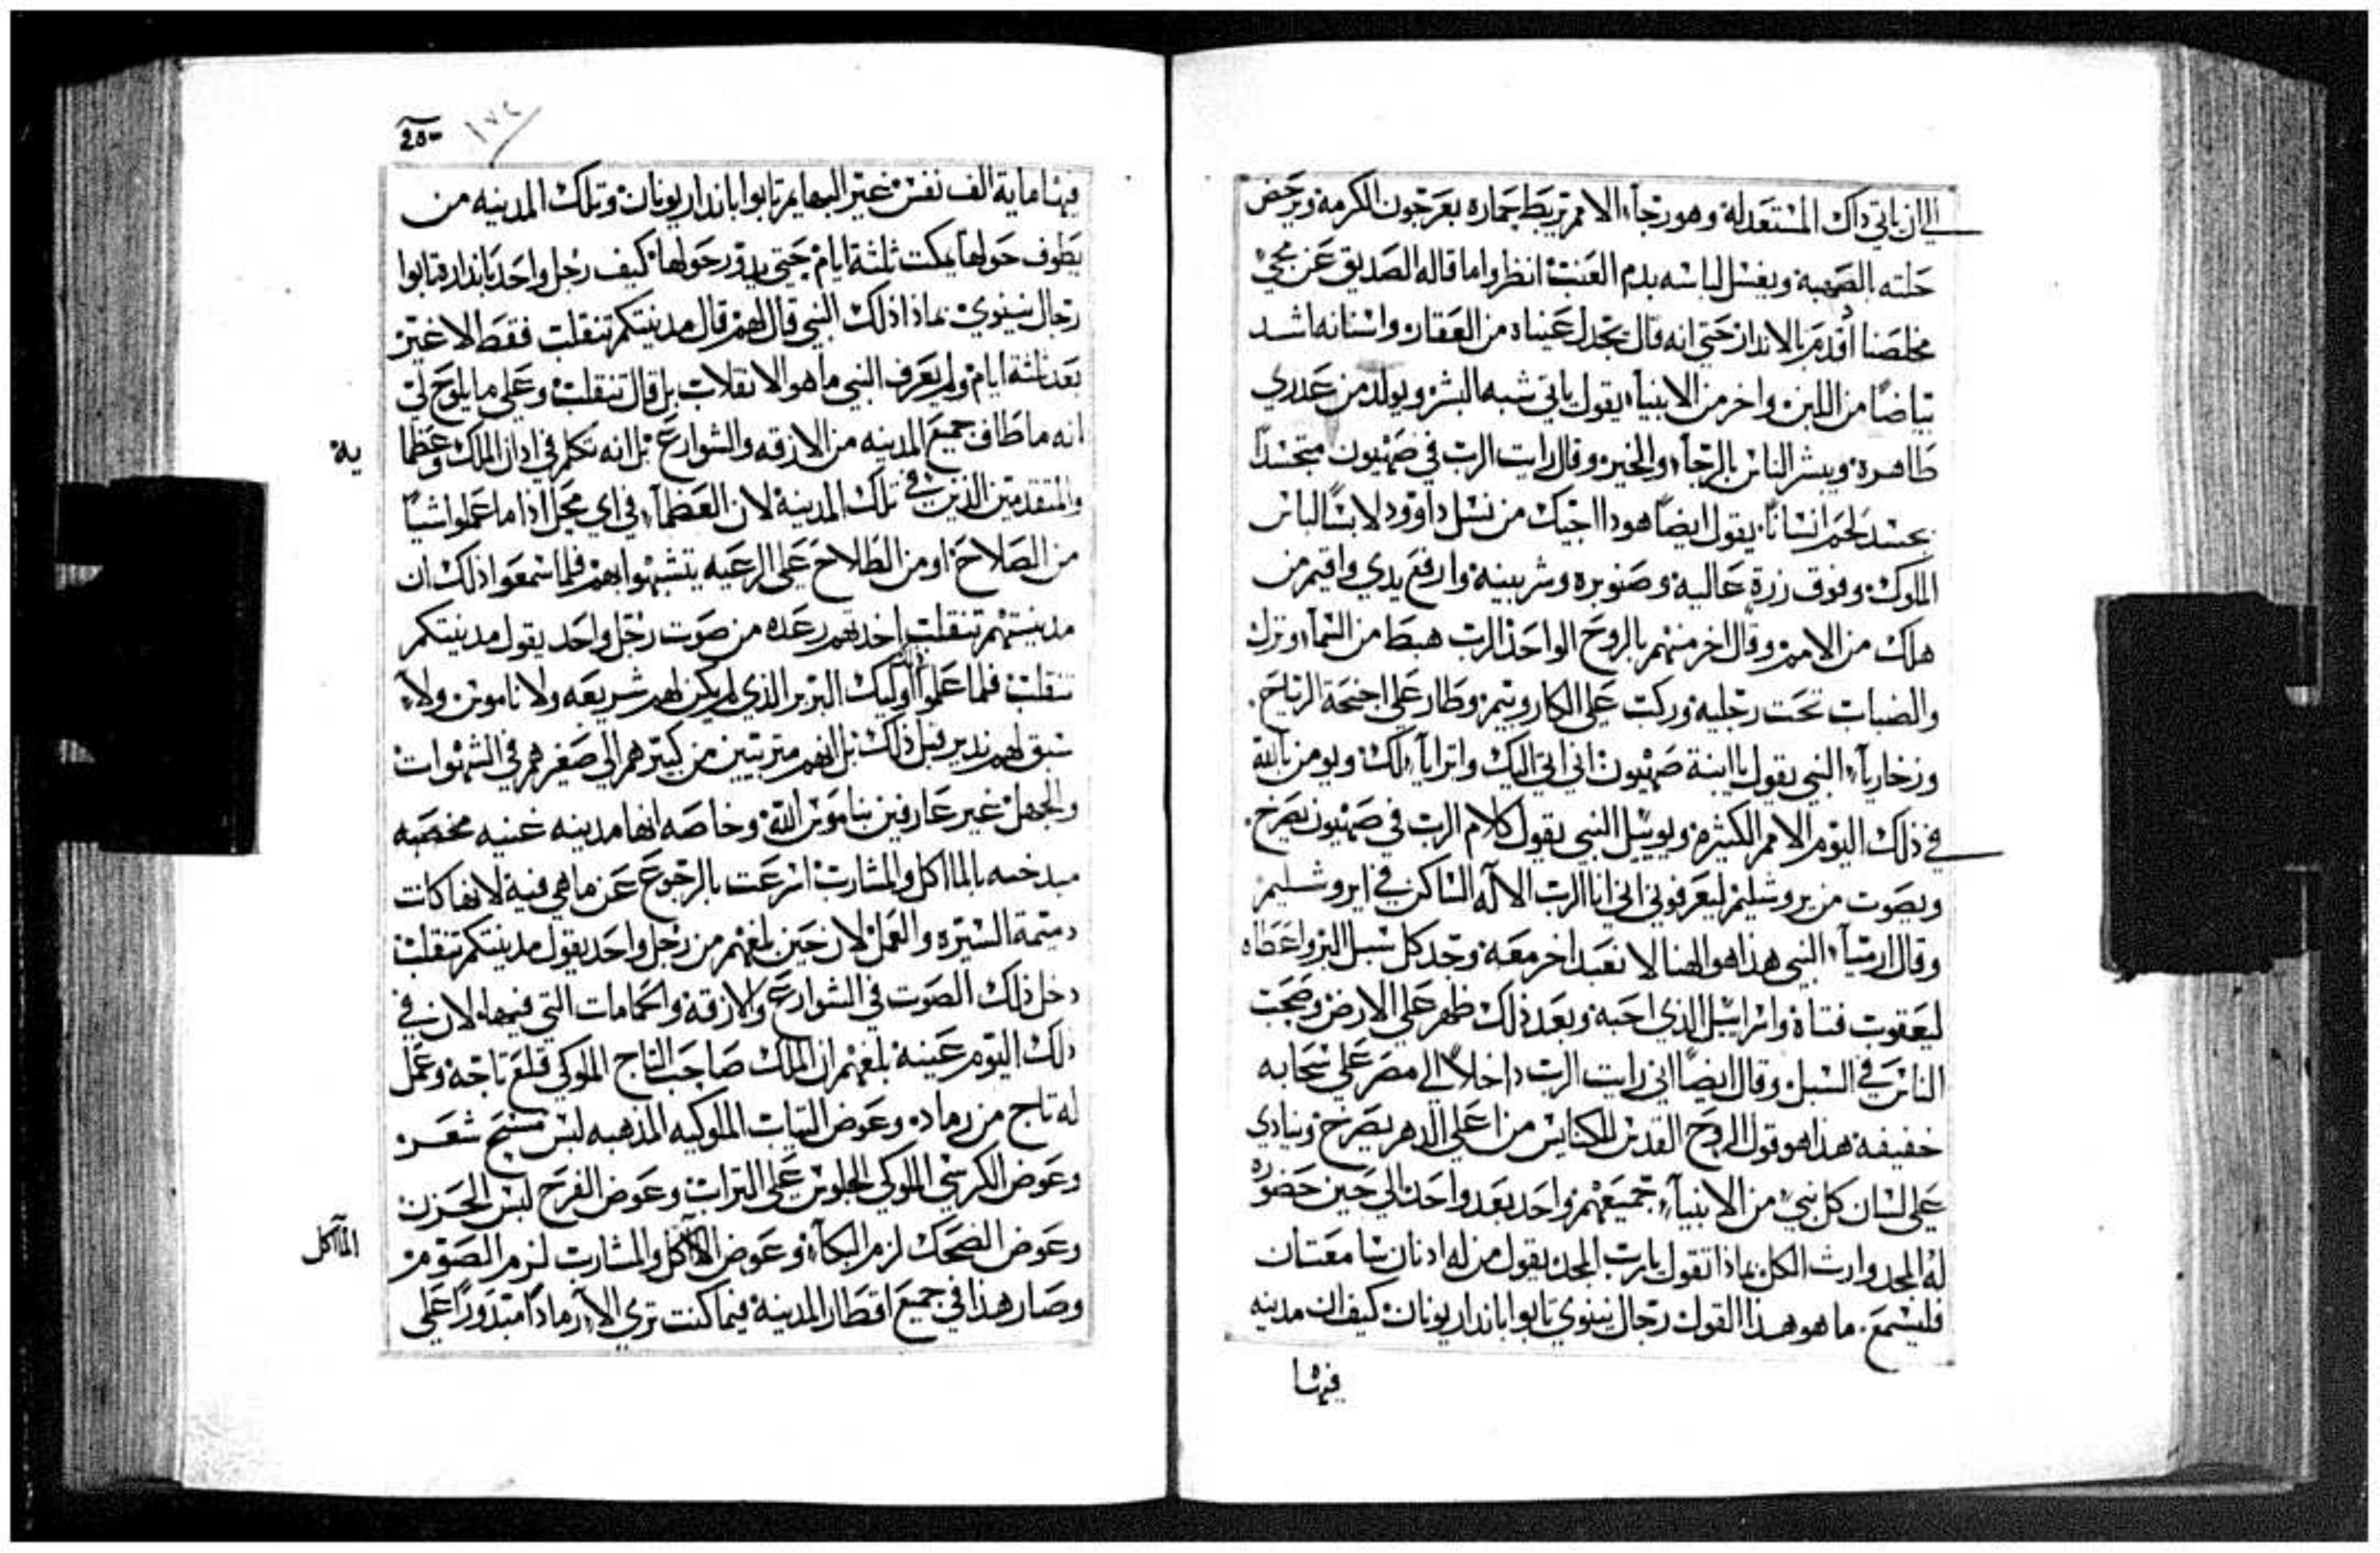 الي ان ياتي داك المستعد له وهو رجآء الامم تربط حماره بعرجون الكرمة ويرحض
حلته الصهبة ويغسل لباسه بدم العنب انظروا ما قاله الصديق عن مجي
مخلصنا أقدم بالاندار حتي انه قال تجدل عيناه من العقار واسنانه اشد
بياضًا من اللبن واخر من الانبيآء يقول ياتي شبه البشر ويولد من عدري
طاهرة ويبشر الناس بالرجآء والخير وقال رايت الرب في صهيون متجسدًا
بجسد لحم انسانًا يقول ايضًا هودا اجيك من نسل داوود لابسًا لباس
الملوك وفوق زرة عالية وصنوبره وشربينه وارفع يدي واقيم من
هلك من الامم وقال اخر منهم بالروح الواحد الرب هبط من السمآء ونزل
والضباب تحت رجليه وركب علي الكاروبيم وطار علي اجنحة الرياح
وزخاريآء النبي يقول يا ابنة صهيون اني اتي اليك واترايآ لك ويومن بالله
في ذلك اليوم الامم الكثيرة ويوييل النبي يقول كلام الرب في صهيون يصرخ
وبصوت من يروشليم ليعرفوني اني انا الرب الاله الساكن في ايروشليم
وقال ارميآء النبي هذا هو الهنا لا نعبد اخر معه وجد كل سبل البر واعطاه
ليعقوب فتاة واسراييل الذي احبه وبعد ذلك ظهر علي الارض وصحب
الناس في السبل وقال ايضًا اني رايت الرب داخلاً الي مصر علي سحابه
خفيفة هذا هو قول الروح القدس للكنايس من اعلي الدهر يصرخ وينادي
علي لسان كل نبي من الانبيآء جميعهم واحد بعد واحد الي حين حضوره
له المجد وارث الكل بماذا تقول يارب المجد يقول من له ادنان سامعتان
فليسمع ما هو هذا القول رجال نينوي تابوا باندار يونان كيف ان مدينه
فيها
250
١٧٤
فيها ماية الف نفس غير البهايم تابوا باندار يونان وتلك المدينه من
يطوف حولها يمكت ثلثة ايام حتي يدور حولها كيف رجل واحد باندار تابوا
رجال نينوي بماذا ذلك النبي قال لهم قال مدينتكم تنقلب فقط لا غير
بعد ثلثة ايام ولم يعرف النبي ما هو الانقلاب بل قال تنقلب وعلي ما يلوح لي
انه ما طاف جميع المدينه من الازقه والشوارع بل انه تكلم في ادان الملك وعظمايه
والمتقدمين الذين في تلك المدينة لان العظمآء في اي محل اذا ما عملوا شيًا
من الصلاح او من الطلاح علي الرعيه يتشبهوا بهم فلما سمعوا ذلك ان
مدينتهم تنقلب اخدتهم رعده من صوت رجل واحد يقول مدينتكم
تنقلب فلما علموا اوليك البربر الذي لم يكن لهم شريعه ولا ناموس ولا
سبق لهم ندير قبل ذلك بل انهم متربيين من كبيرهم الي صغيرهم في الشهوات
والجهل غير عارفين بناموس الله وخاصه انها مدينه غنيه مخصبه
مبدخه بالمااكل والمشارب اسرعت بالرجوع عن ما هي فيه لانها كانت
دميمة السيره والعمل لان حين بلغهم من رجل واحد يقول مدينتكم تنقلب
دخل ذلك الصوت في الشوارع والازقة والحمامات التي فيها لان في
ذلك اليوم عينه بلغهم ان الملك صاحب التاج الملوكي قلع تاجه وعمل
له تاج من رماد وعوض التياب الملوكيه المذهبه لبس مسح شعر
وعوض الكرسي الملوكي الجلوس علي التراب وعوض الفرح لبس الحزن
وعوض الضحك لزم البكآء وعوض المآكل والمشارب لزم الصوم
المآكل
وصار هذا في جميع اقطار المدينة فيما كنت تري الا رمادًا مبدورًا علي